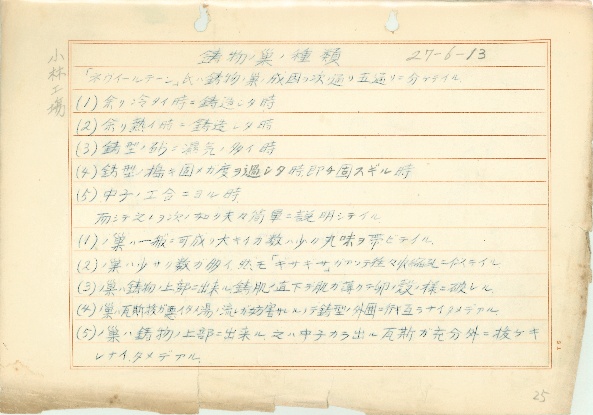 鋳物ノ巣ノ種類 27-6-13
小林工場
「ネウイールチーン」氏ハ鋳物ノ巣ノ成因ヲ次ノ通リ五通リニ分ケテイル
(1) 余リ冷タイ時ニ鋳造シタ時
(2) 余リ熱イ時ニ鋳造シタ時
(3) 鋳型ノ砂ニ湿気ノ多イ時
(4) 鋳型ノ搗キ固メカ度ヲ過シタ時即チ固スギル時
(5) 中子ノ工合ニヨル時
而シテ之ヲ次ノ如ク夫々簡単ニ説明シテイル
(1)ノ巣ハ一般ニ可成リ大キイカ数ハ少ク丸味ヲ帯ビテイル
(2)ノ巣ハ少サク数カ多ク然モ「ギサギサ」
(3)ノ巣ハ鋳物ノ上部ニ出来ル鋳肌ノ直下ヲ皮カ薄クテ卵ノ殻ノ様ニ破レル
(4)ノ巣ハ瓦斯抜ガ悪イタメ湯ノ流レガ妨害サレ
(5)ノ巣ハ鋳物ノ上部ニ出来ル 之ハ中子カラ出ル瓦斯カ充分外ニ抜ケキ
レナイタメデアル
25